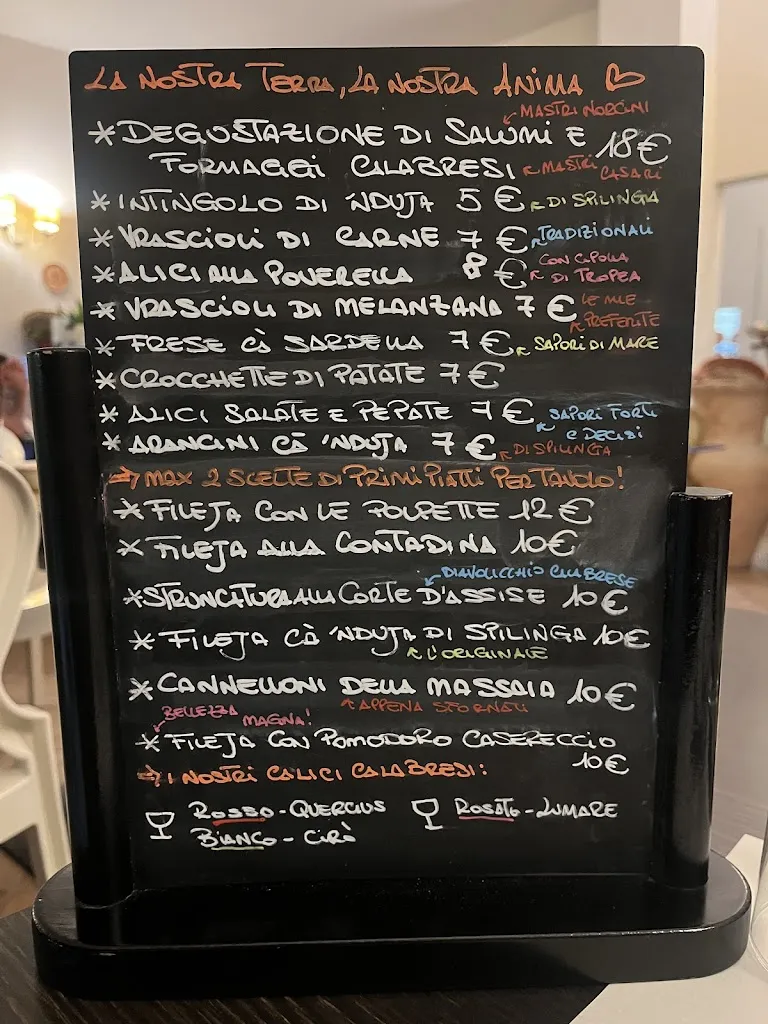 LA NOSTRA TERRA, LA NOSTRA ANIMA ♡
MASTRI NORCINI
* DEGUSTAZIONE DI SALUMI E 18€
FORMAGGI CALABRESI MASTRI CASARI
* INTINGOLO DI 'NDUJA 5 € DI SPILINGA
* VRASCIOLI DI CARNE 7 € TRADIZIONALI
* ALICI ALLA POVERELLA 8 € CON CIPOLLA DI TROPEA
* VRASCIOLI DI MELANZANA 7 € LE MIE PREFERITE
* FRESE CÀ SARDELLA 7 € SAPORI DI MARE
* CROCCHETTE DI PATATE 7 €
* ALICI SALATE E PEPATE 7 € SAPORI FORTI E DECISI
* ARANCINI CÀ 'NDUJA 7 € DI SPILINGA
⇒ MAX 2 SCELTE DI PRIMI PIATTI PER TAVOLO!
* FILEJA CON LE POLPETTE 12 €
* FILEJA ALLA CONTADINA 10€
DIAVOLICCHIO CALABRESE
* STRUNCATURA ALLA CORTE D'ASSISE 10 €
* FILEJA CÀ 'NDUJA DI SPILINGA 10€
L'ORIGINALE
* CANNELLONI DELLA MASSAIA 10€
APPENA SFORNATI
BELLEZZA MAGNA!
* FILEJA CON POMODORO CASERECCIO
10€
⇒ I NOSTRI CALICI CALABRESI:
ROSSO - QUERCIUS ROSATO - LUMARE
BIANCO - CIRÒ